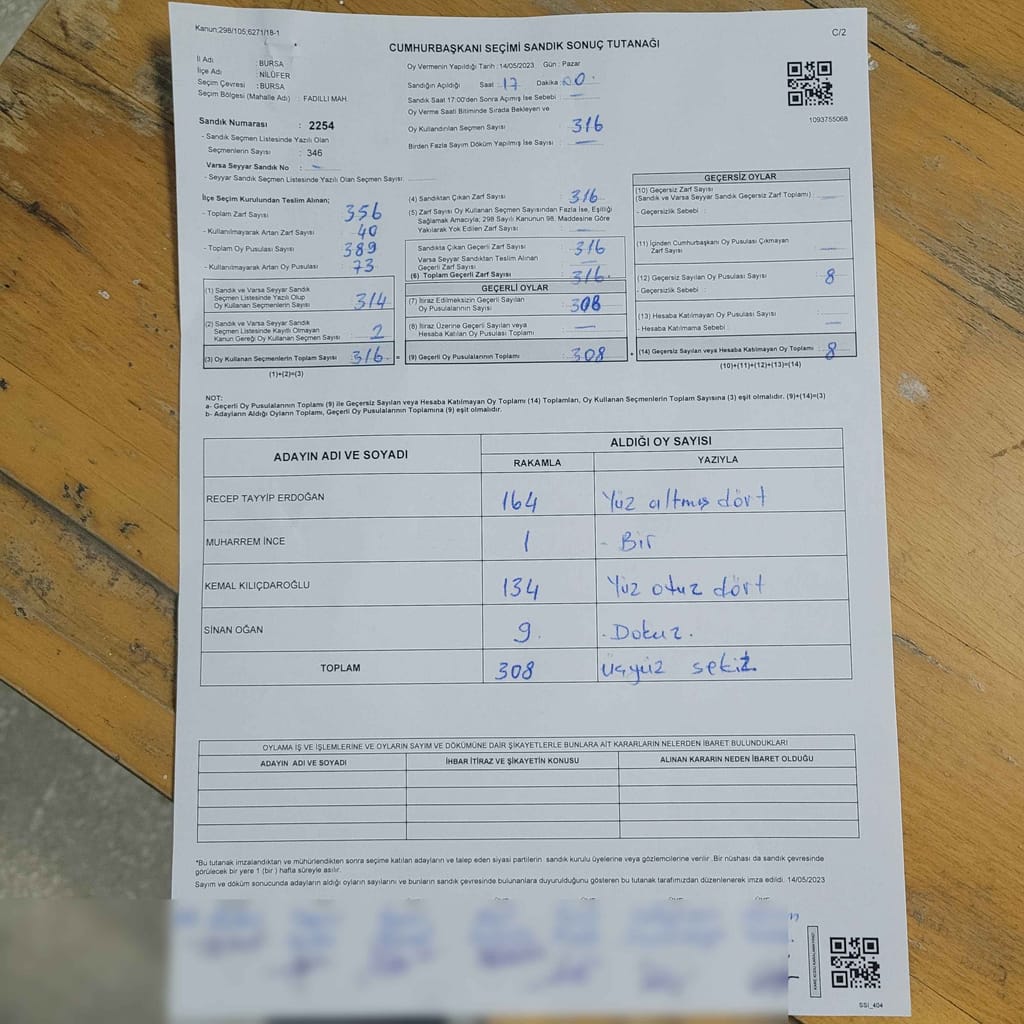 Kanun;298/105;6271/18-1
C/2
CUMHURBAŞKANI SEÇİMİ SANDIK SONUÇ TUTANAĞI
İl Adı : BURSA
İlçe Adı : NİLÜFER
Seçim Çevresi : BURSA
Seçim Bölgesi (Mahalle Adı) : FADILLI MAH.
Sandık Numarası : 2254
- Sandık Seçmen Listesinde Yazılı Olan
Seçmenlerin Sayısı : 346
Varsa Seyyar Sandık No :
- Seyyar Sandık Seçmen Listesinde Yazılı Olan Seçmen Sayısı:
Oy Vermenin Yapıldığı Tarih :14/05/2023 Gün : Pazar
Sandığın Açıldığı Saat : 17 Dakika : 00
Sandık Saat 17:00'den Sonra Açılmış İse Sebebi :
Oy Verme Saati Bitiminde Sırada Bekleyen ve
Oy Kullandırılan Seçmen Sayısı : 316
Birden Fazla Sayım Döküm Yapılmış İse Sayısı :
1093755068
İlçe Seçim Kurulundan Teslim Alınan;
- Toplam Zarf Sayısı : 356
- Kullanılmayarak Artan Zarf Sayısı : 40
- Toplam Oy Pusulası Sayısı : 389
- Kullanılmayarak Artan Oy Pusulası : 73
(1) Sandık ve Varsa Seyyar Sandık
Seçmen Listesinde Yazılı Olup
Oy Kullanan Seçmenlerin Sayısı : 314
(2) Sandık ve Varsa Seyyar Sandık
Seçmen Listesinde Kayıtlı Olmayan
Kanun Gereği Oy Kullanan Seçmen Sayısı : 2
(3) Oy Kullanan Seçmenlerin Toplam Sayısı : 316 =
(1)+(2)=(3)
(4) Sandıktan Çıkan Zarf Sayısı : 316
(5) Zarf Sayısı Oy Kullanan Seçmen Sayısından Fazla İse, Eşitliği
Sağlamak Amacıyla; 298 Sayılı Kanunun 98. Maddesine Göre
Yakılarak Yok Edilen Zarf Sayısı :
Sandıkta Çıkan Geçerli Zarf Sayısı : 316
Varsa Seyyar Sandıktan Teslim Alınan
Geçerli Zarf Sayısı :
(6) Toplam Geçerli Zarf Sayısı : 316
GEÇERLİ OYLAR
(7) İtiraz Edilmeksizin Geçerli Sayılan
Oy Pusulalarının Sayısı : 308
(8) İtiraz Üzerine Geçerli Sayılan veya
Hesaba Katılan Oy Pusulası Toplamı :
(9) Geçerli Oy Pusulalarının Toplamı : 308 +
GEÇERSİZ OYLAR
(10) Geçersiz Zarf Sayısı
(Sandık ve Varsa Seyyar Sandık Geçersiz Zarf Toplamı) :
- Geçersizlik Sebebi :
(11) İçinden Cumhurbaşkanı Oy Pusulası Çıkmayan
Zarf Sayısı :
(12) Geçersiz Sayılan Oy Pusulası Sayısı : 8
- Geçersizlik Sebebi :
(13) Hesaba Katılmayan Oy Pusulası Sayısı :
- Hesaba Katılmama Sebebi :
(14) Geçersiz Sayılan veya Hesaba Katılmayan Oy Toplamı : 8
(10)+(11)+(12)+(13)=(14)
NOT:
a- Geçerli Oy Pusulalarının Toplamı (9) ile Geçersiz Sayılan veya Hesaba Katılmayan Oy Toplamı (14) Toplamları, Oy Kullanan Seçmenlerin Toplam Sayısına (3) eşit olmalıdır. (9)+(14)=(3)
b- Adayların Aldığı Oyların Toplamı, Geçerli Oy Pusulalarının Toplamına (9) eşit olmalıdır.
ADAYIN ADI VE SOYADI ALDIĞI OY SAYISI
RAKAMLA YAZIYLA
RECEP TAYYİP ERDOĞAN 164 Yüz altmış dört
MUHARREM İNCE 1 - Bir
KEMAL KILIÇDAROĞLU 134 Yüz otuz dört
SİNAN OĞAN 9. - Dokuz.
TOPLAM 308 Üçyüz sekiz
OYLAMA İŞ VE İŞLEMLERİNE VE OYLARIN SAYIM VE DÖKÜMÜNE DAİR ŞİKAYETLERLE BUNLARA AİT KARARLARIN NELERDEN İBARET BULUNDUKLARI
ADAYIN ADI VE SOYADI İHBAR İTİRAZ VE ŞİKAYETİN KONUSU ALINAN KARARIN NEDEN İBARET OLDUĞU
*Bu tutanak imzalandıktan ve mühürlendikten sonra seçime katılan adayların ve talep eden siyasi partilerin sandık kurulu üyelerine veya gözlemcilerine verilir. Bir nüshası da sandık çevresinde
görülecek bir yere 1 (bir) hafta süreyle asılır.
Sayım ve döküm sonucunda adayların aldığı oyların sayılarını ve bunların sandık çevresinde bulunanlara duyurulduğunu gösteren bu tutanak tarafımızdan düzenlenerek imza edildi. 14/05/2023
SSİ_404